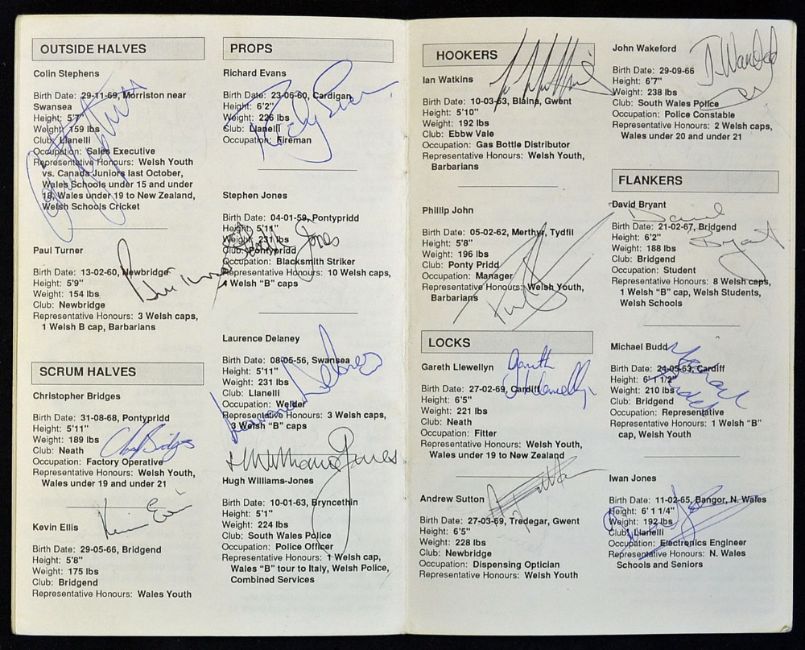 OUTSIDE HALVES
Colin Stephens
Birth Date: 29-11-69, Morriston near
Swansea
Height: 5'7"
Weight: 159 lbs
Club: Llanelli
Occupation: Sales Executive
Representative Honours: Welsh Youth
vs. Canada Juniors last October,
Wales Schools under 15 and under
18, Wales under 19 to New Zealand,
Welsh Schools Cricket
Paul Turner
Birth Date: 13-02-60, Newbridge
Height: 5'9"
Weight: 154 lbs
Club: Newbridge
Representative Honours: 3 Welsh caps,
1 Welsh B cap, Barbarians
SCRUM HALVES
Christopher Bridges
Birth Date: 31-08-68, Pontypridd
Height: 5'11"
Weight: 189 lbs
Club: Neath
Chris Bridges
Occupation: Factory Operative
Representative Honours: Welsh Youth,
Wales under 19 and under 21
Kevin Ellis
Kevin Ellis
Birth Date: 29-05-66, Bridgend
Height: 5'8"
Weight: 175 lbs
Club: Bridgend
Representative Honours: Wales Youth
PROPS
Richard Evans
Birth Date: 23-06-60, Cardigan
Height: 6'2"
Weight: 226 lbs
Club: Llanelli
Occupation: Fireman
Ricky Evans
Stephen Jones
Birth Date: 04-01-59, Pontypridd
Height: 5'11"
Weight: 231 lbs
Club: Pontypridd
Occupation: Blacksmith Striker
Representative Honours: 10 Welsh caps,
Welsh "B" caps
Laurence Delaney
Birth Date: 08-05-56, Swansea
Height: 5'11"
Weight: 231 lbs
Club: Llanelli
Occupation: Welder
Representative Honours: 3 Welsh caps,
3 Welsh "B" caps
Laurance Delaney
H Williams Jones
Hugh Williams-Jones
Birth Date: 10-01-63, Bryncethin
Height: 5'1"
Weight: 224 lbs
Club: South Wales Police
Occupation: Police Officer
Representative Honours: 1 Welsh cap,
Wales "B" tour to Italy, Welsh Police,
Combined Services
HOOKERS
Ian Watkins
Birth Date: 10-03-63, Blaina, Gwent
Height: 5'10"
Weight: 192 lbs
Club: Ebbw Vale
Occupation: Gas Bottle Distributor
Representative Honours: Welsh Youth,
Barbarians
Phillip John
Birth Date: 05-02-62, Merthyr, Tydfil
Height: 5'8"
Weight: 196 lbs
Club: Ponty Pridd
Occupation: Manager
Representative Honours: Welsh Youth,
Barbarians
LOCKS
Gareth Llewellyn
Birth Date: 27-02-69, Cardiff
Height: 6'5"
Weight: 221 lbs
Club: Neath
Occupation: Fitter
Representative Honours: Welsh Youth,
Wales under 19 to New Zealand
Gareth Llewellyn
Andrew Sutton
Birth Date: 27-03-69, Tredegar, Gwent
Height: 6'5"
Weight: 228 lbs
Club: Newbridge
Occupation: Dispensing Optician
Representative Honours: Welsh Youth
John Wakeford
Birth Date: 29-09-66
Height: 6'7"
Weight: 238 lbs
Club: South Wales Police
Occupation: Police Constable
Representative Honours: 2 Welsh caps,
Wales under 20 and under 21
FLANKERS
David Bryant
David
Bryant
Birth Date: 21-02-67, Bridgend
Height: 6'2"
Weight: 188 lbs
Club: Bridgend
Occupation: Student
Representative Honours: 8 Welsh caps,
1 Welsh "B" cap, Welsh Students,
Welsh Schools
Michael Budd
Birth Date: 24-05-63, Cardiff
Height: 6'1 1/2"
Weight: 210 lbs
Club: Bridgend
Occupation: Representative
Representative Honours: 1 Welsh "B"
cap, Welsh Youth
Iwan Jones
Birth Date: 11-02-65, Bangor, N. Wales
Height: 6'1 1/4"
Weight: 192 lbs
Club: Llanelli
Occupation: Electronics Engineer
Representative Honours: N. Wales
Schools and Seniors